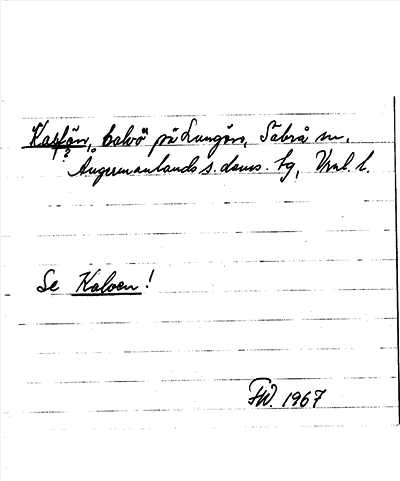 Kalfön, halvö på Lungön, Säbrå sn.
?
Ångermanlands s. doms. tg, Vnl. l.
Se Kalven!
FW. 1967